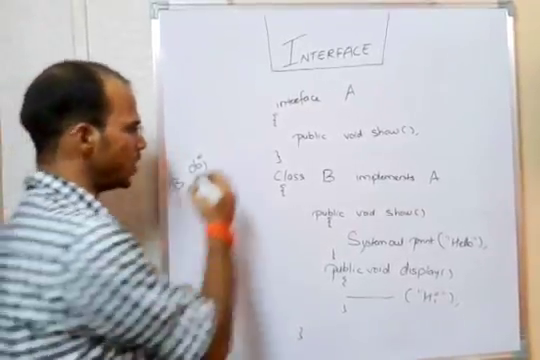 INTERFACE
interface A
{
public void show();
}
Class B implements A
{
public void show()
{
System out print ("Hello");
}
public void display()
{
("Hi");
}
}
B